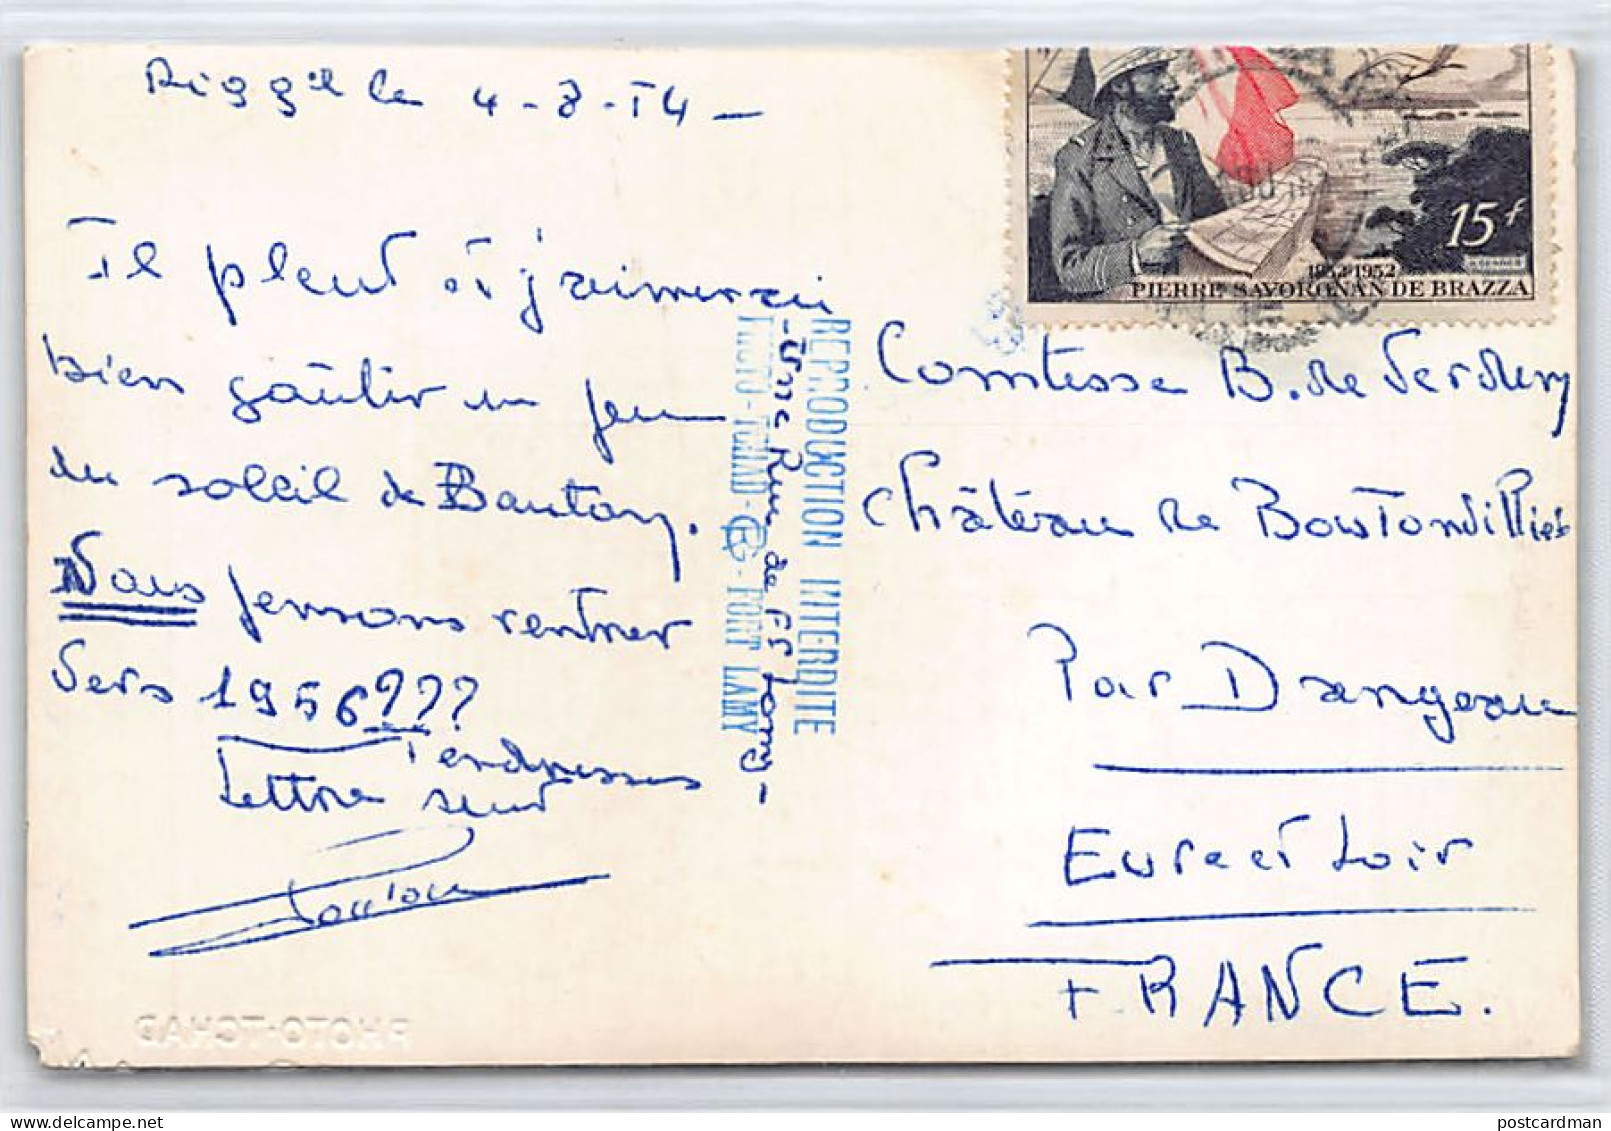 le 4-8-54-
Il pleut et j'aimerais
bien goûter un peu
du soleil de
Nous pensons rentrer
vers 1956???
Tendresses
Lettre suit
-Une Rue de Ft Lamy-
REPRODUCTION INTERDITE
PHOTO-TCHAD - FORT LAMY
1852-1952
PIERRE SAVORGNAN DE BRAZZA
15f
Comtesse B. de
Château de Boutonvilliers
Par Dangeau
Eure et Loir
FRANCE.
PHOTO-TCHAD
postcardman